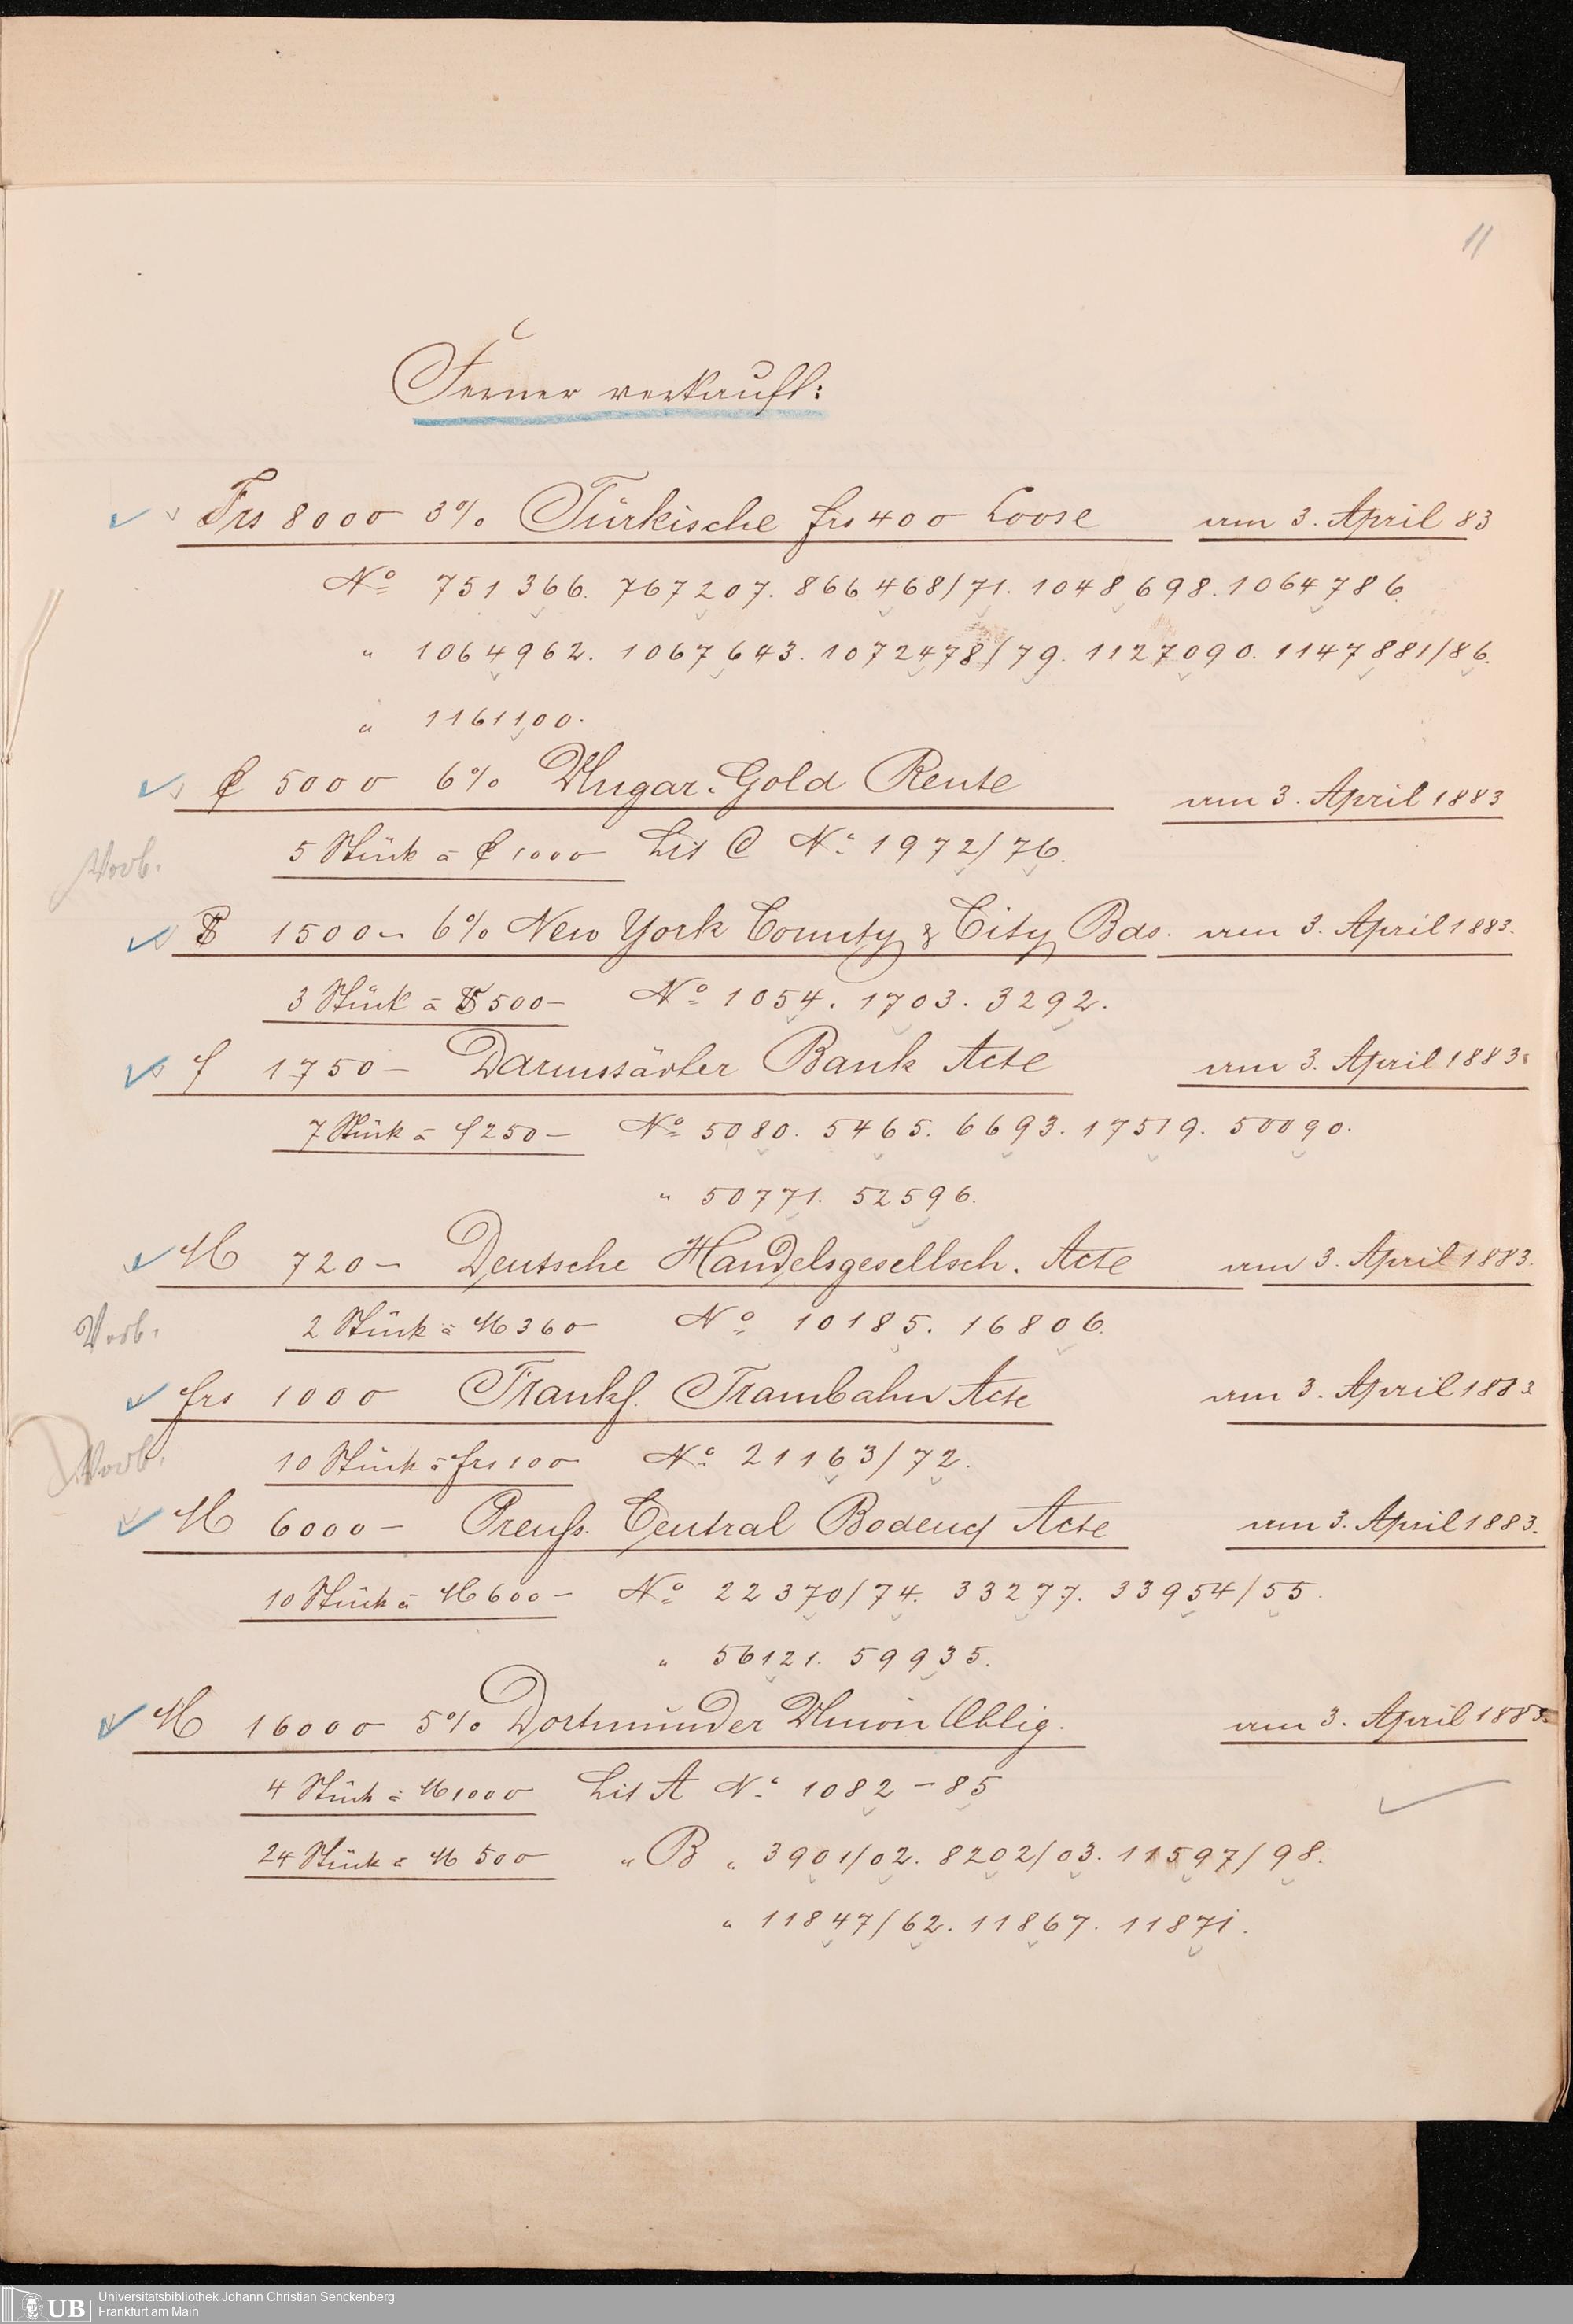 11
Ferner verkauft:
Frs 8000 3% Türkische frs 400 Loose am 3. April 83
No 751366. 767207. 866468/71. 1048698. 1064786.
" 1064962. 1067643. 1072478/79. 1127090. 1147881/86.
" 1161100.
₤ 5000 6% Ungar. Gold Rente am 3. April 1883
5 Stück à ₤ 1000 Lit C No 1972/76.
Vorb.
$ 1500 – 6% New York County & City Bds. am 3. April 1883.
3 Stück à $ 500 – No 1054. 1703. 3292.
f 1750 – Darmstädter Bank Acte am 3. April 1883.
7 Stück à f 250 – No 5080. 5465. 6693. 17519. 50090.
" 50771. 52596.
M 720 – Deutsche Handelsgesellsch. Acte am 3. April 1883.
Vorb.
2 Stück à M 360 No 10185. 16806.
frs 1000 Frankf. Trambahn Acte am 3. April 1883
Vorb.
10 Stück à frs 100 No 21163/72.
M 6000 – Preuß. Central Bodencr Acte am 3. April 1883.
10 Stück à M 600 – No 22370/74. 33277. 33954/55.
" 56121. 59935.
M 16000 5% Dortmunder Union Oblig. am 3. April 1883.
4 Stück à M 1000 Lit A No 1082 – 85
24 Stück à M 500 " B " 3901/02. 8202/03. 11597/98.
" 11847/62. 11867. 11871.
UB Universitätsbibliothek Johann Christian Senckenberg
Frankfurt am Main